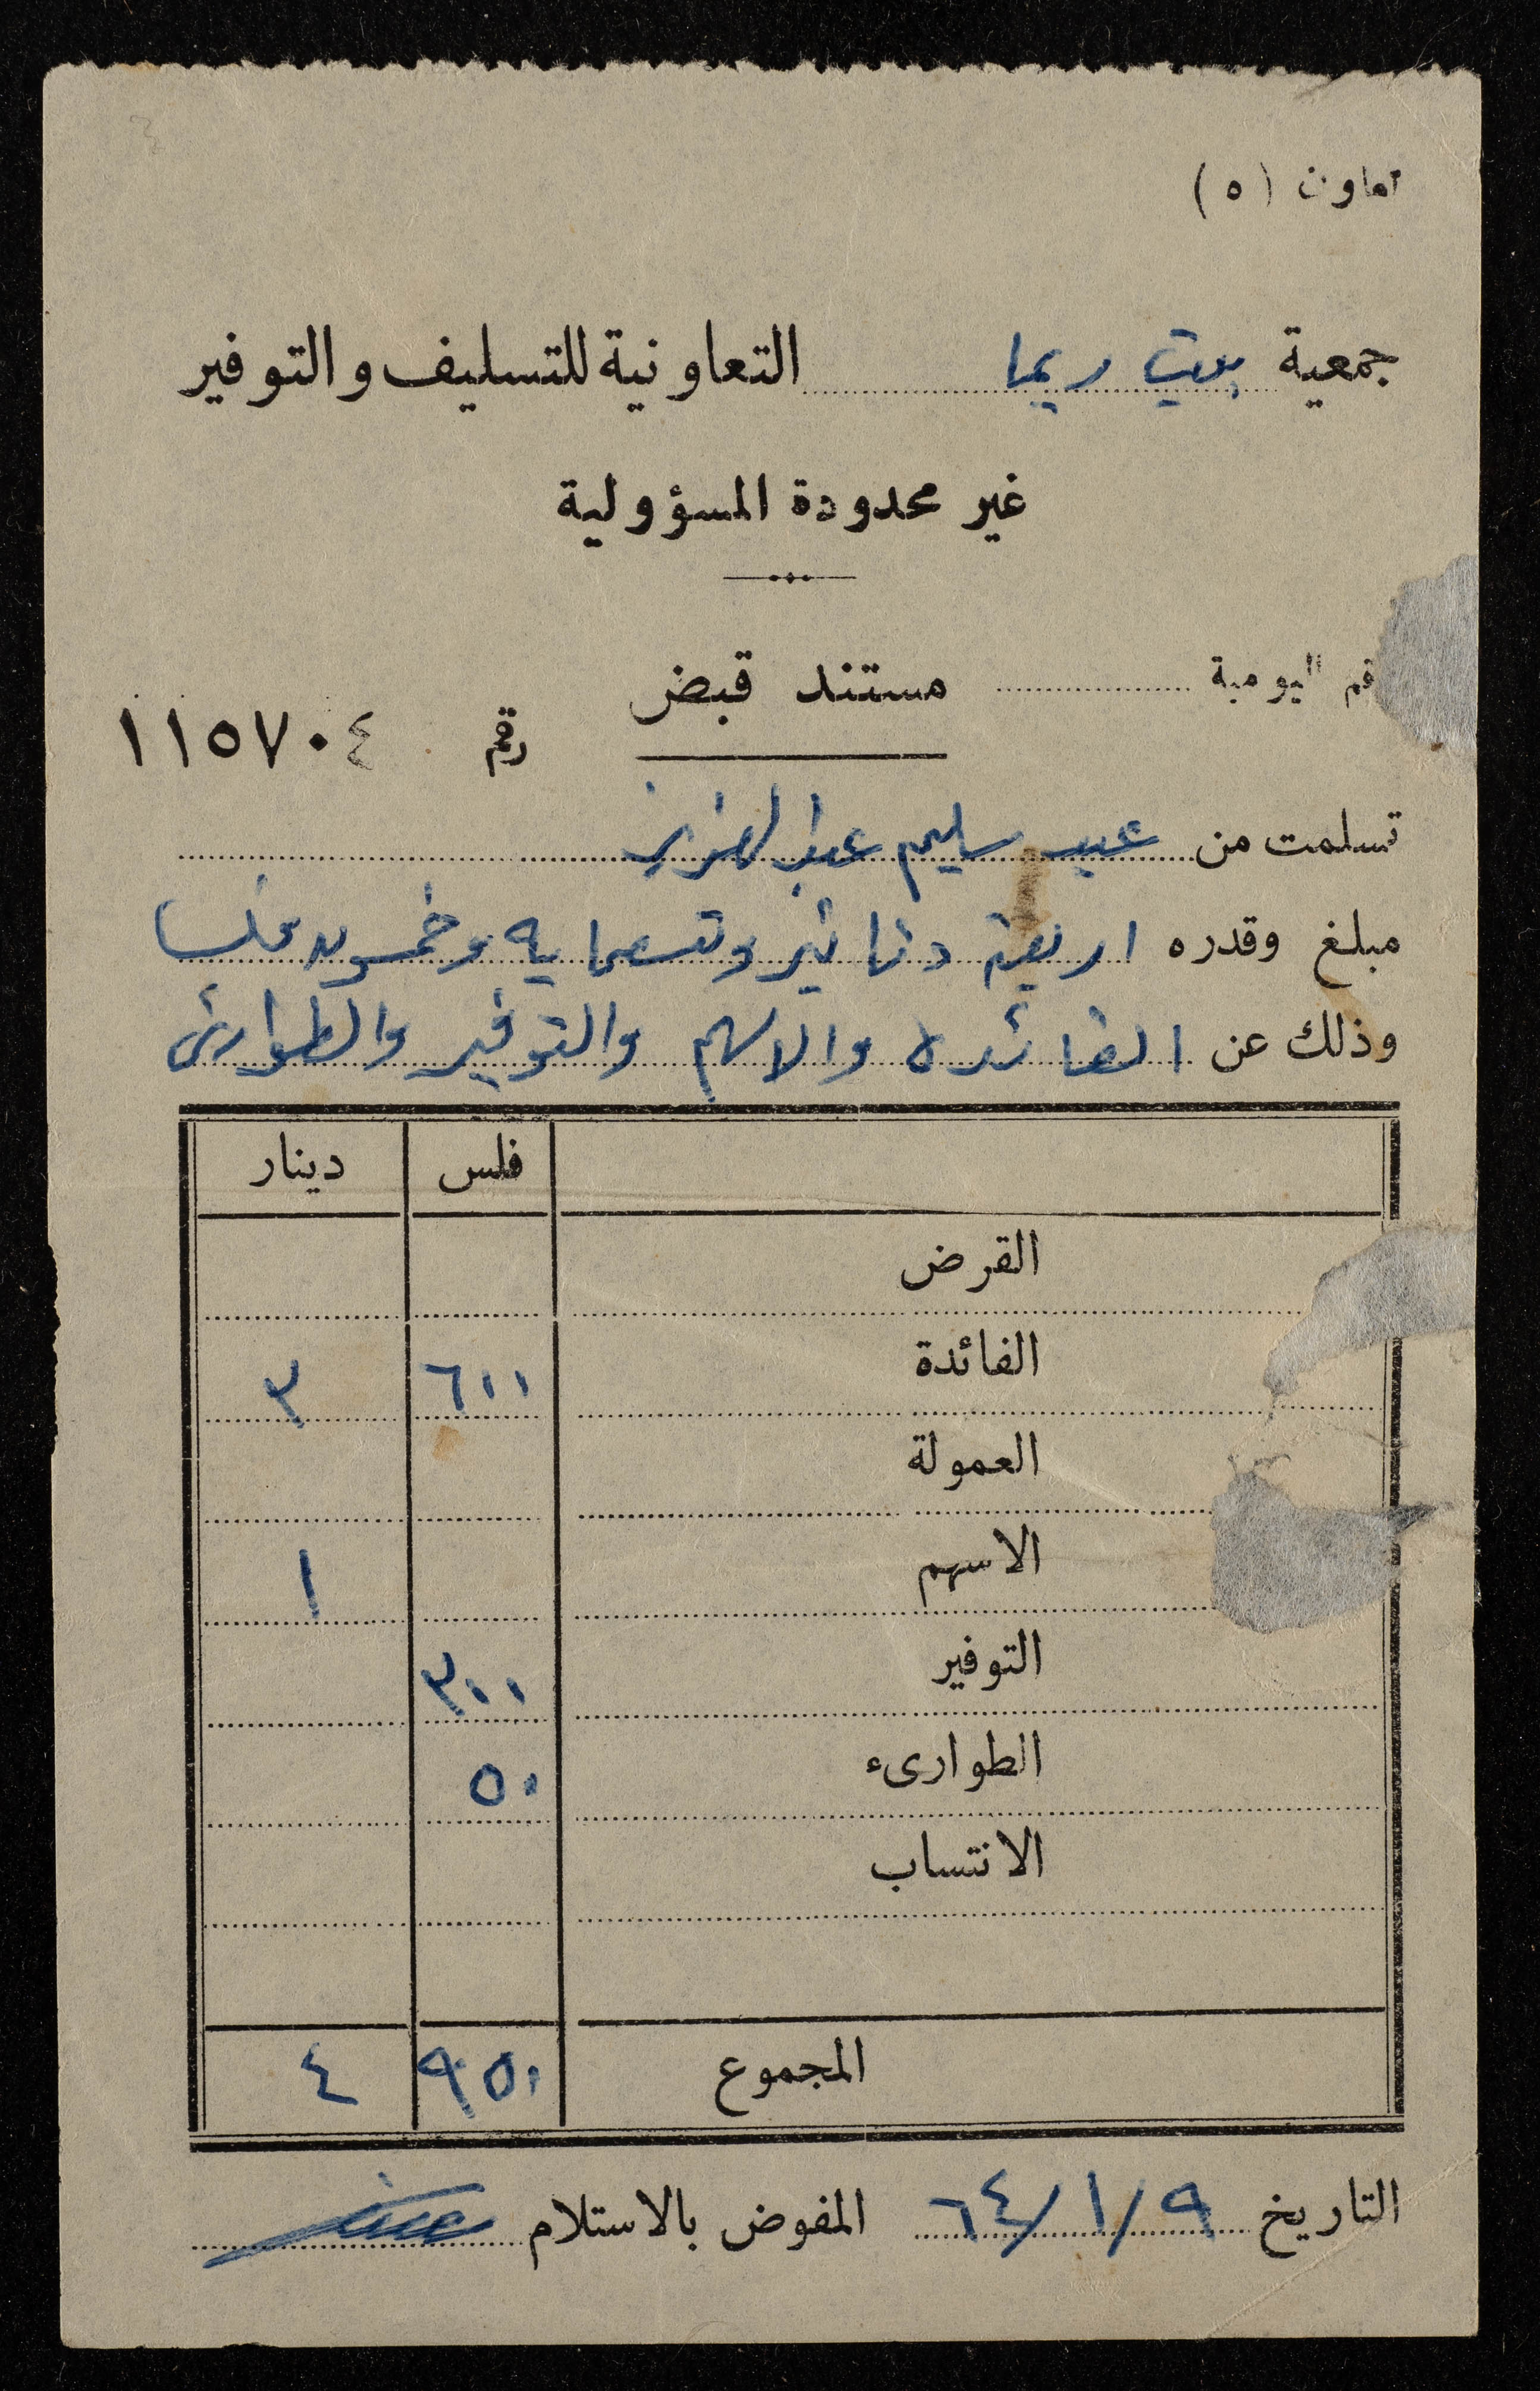 تعاون (٥)
جمعية بيت ريما التعاونية للتسليف والتوفير
غير محدودة المسؤولية
قم اليومية
مستند قبض
رقم ١١٥٧٠٤
تسلمت من عبد سليم عبد العزيز
مبلغ وقدره اربعة دنانير وتسعمايه وخمسون فلسا
وذلك عن الفائده والاسهم والتوفير والطوارئ
فلس دينار
القرض
الفائدة ٦٠٠ ٣
العمولة
الاسهم ١
التوفير ٣٠٠
الطوارىء ٥٠
الانتساب
المجموع ٩٥٠ ٤
التاريخ ٩/١/٦٤ المفوض بالاستلام